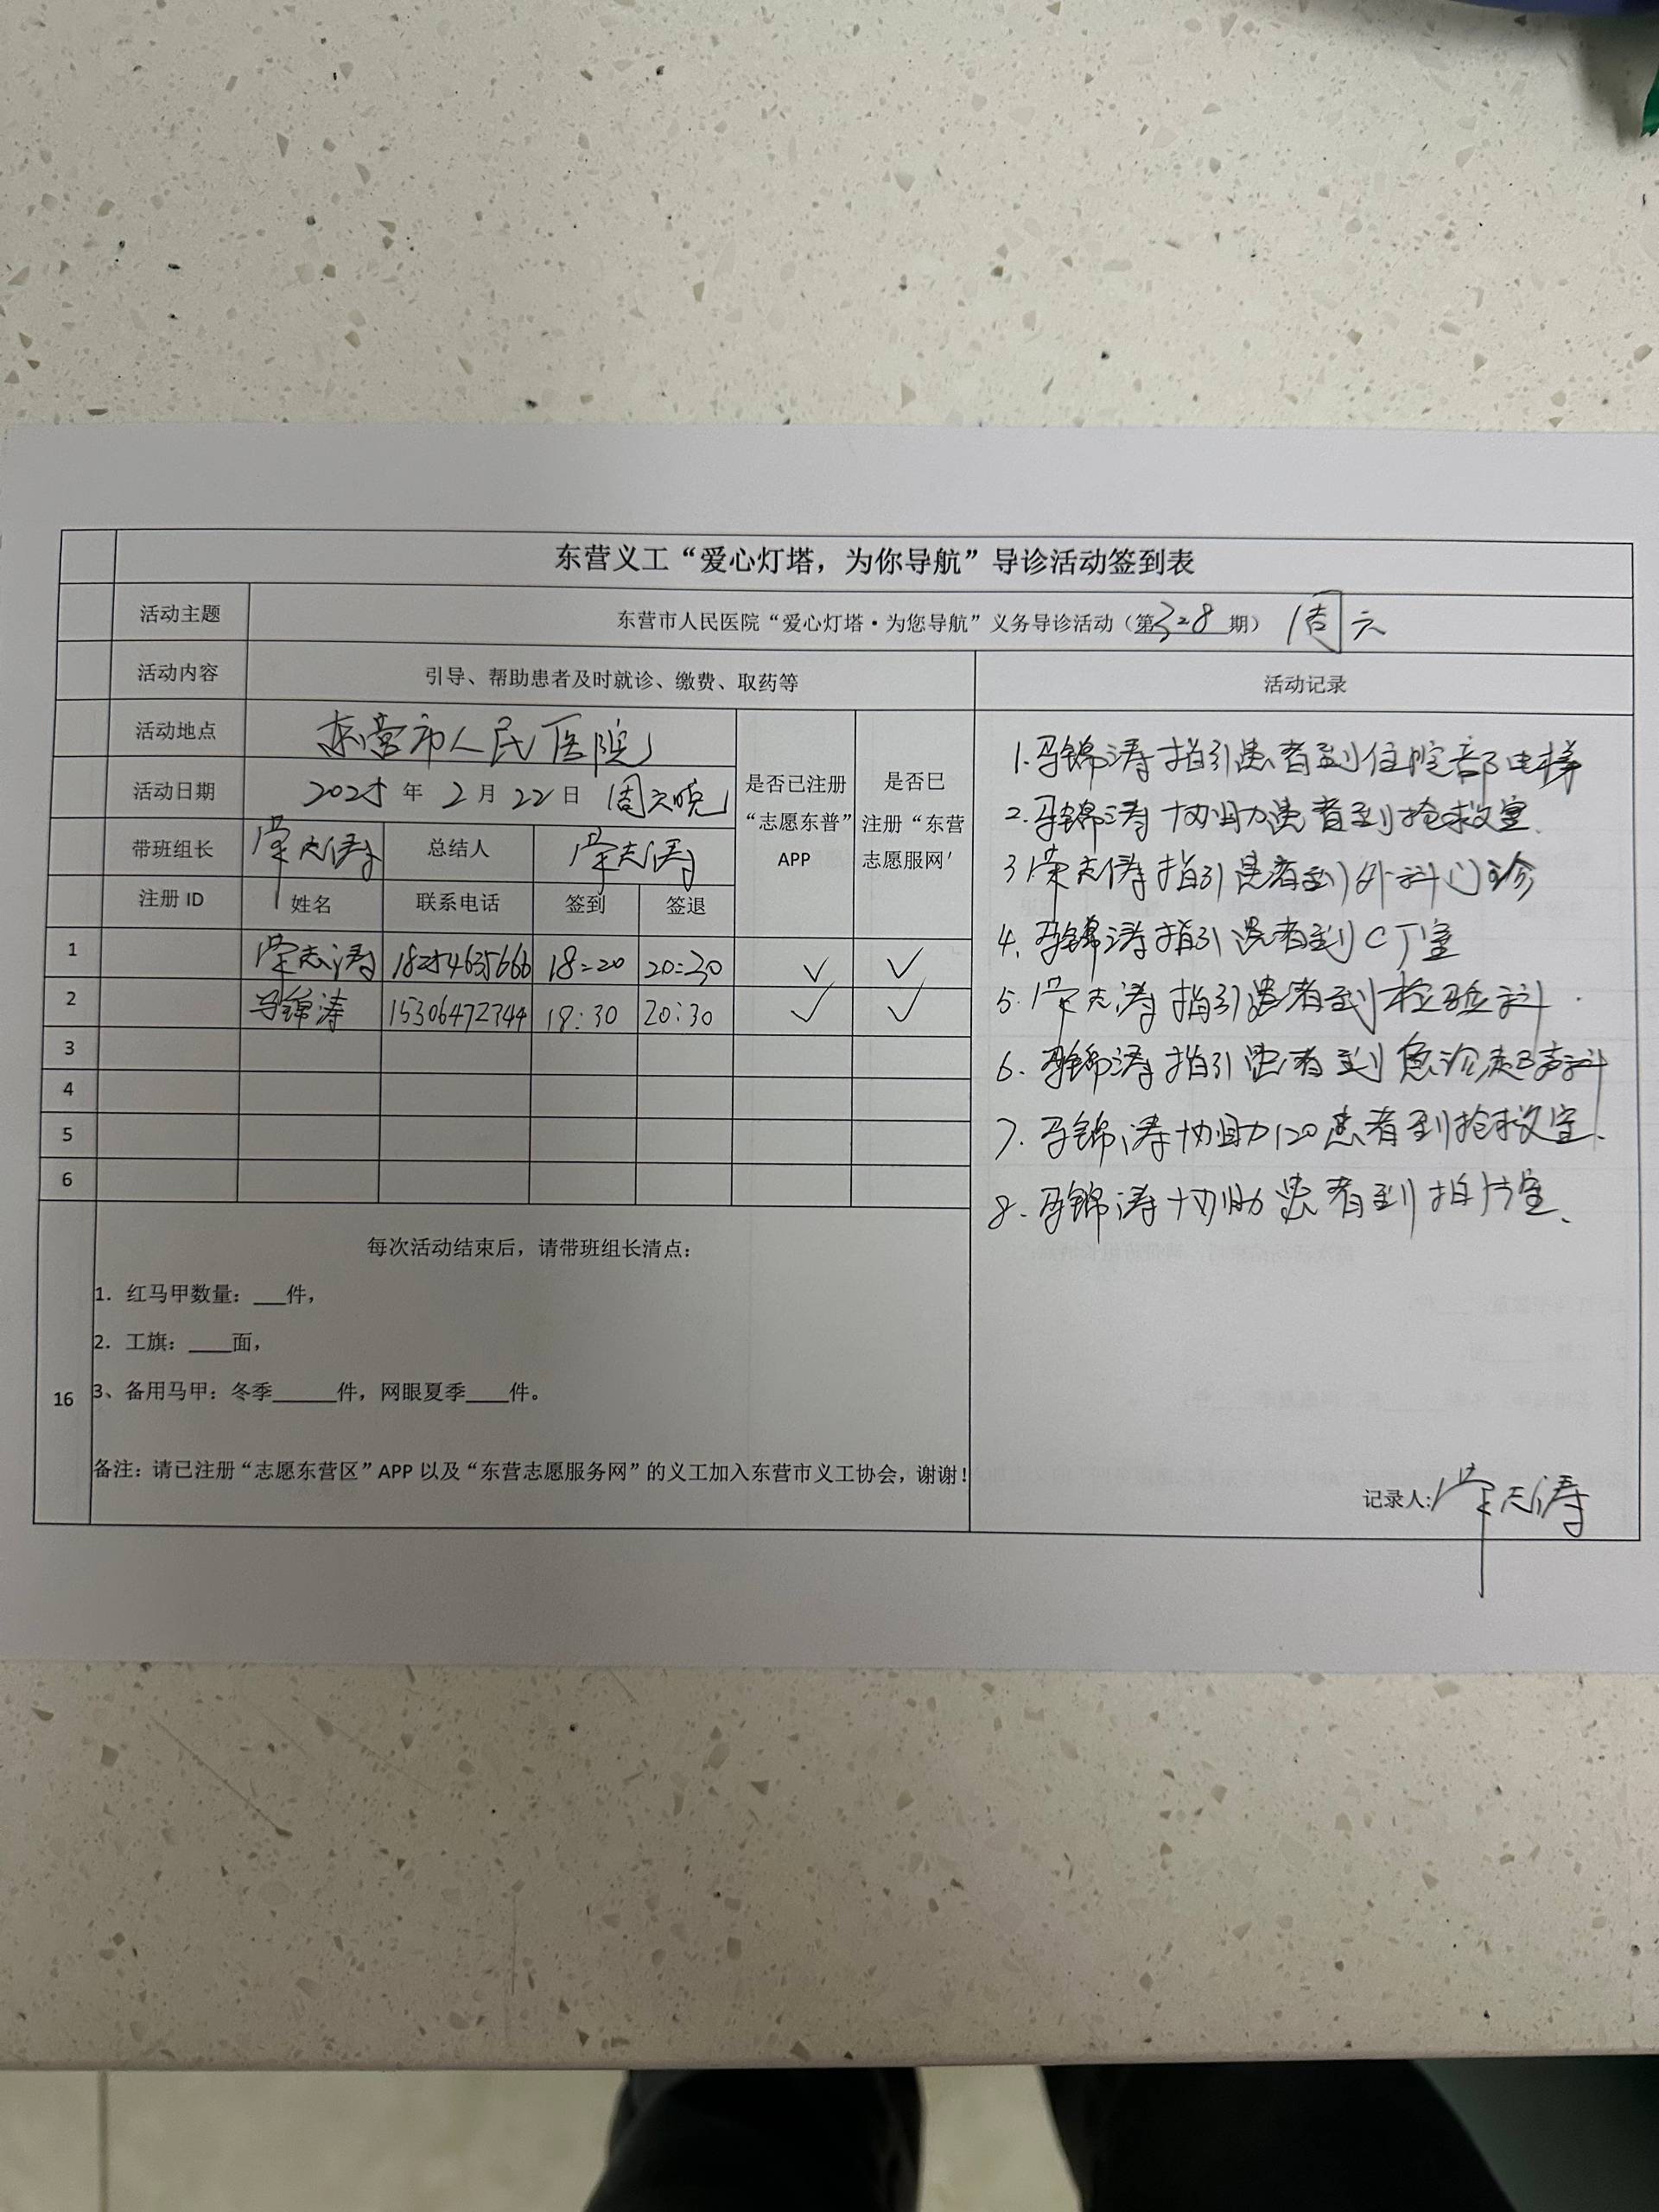 东营义工“爱心灯塔，为你导航”导诊活动签到表
活动主题 东营市人民医院“爱心灯塔·为您导航”义务导诊活动（第328期） 周六
活动内容 引导、帮助患者及时就诊、缴费、取药等 活动记录
活动地点 东营市人民医院
活动日期 2025年2月22日 周六晚
是否已注册“志愿东普”APP
是否已注册“东营志愿服网'
带班组长 荣志涛 总结人 荣志涛
注册ID 姓名 联系电话 签到 签退
1 荣志涛 18254635666 18:20 20:30 ✓ ✓
2 马锦涛 15306472744 18:30 20:30 ✓ ✓
3
4
5
6
16
每次活动结束后，请带班组长清点：
1. 红马甲数量：___件，
2. 工旗：____面，
3、备用马甲：冬季______件，网眼夏季____件。
备注：请已注册“志愿东营区”APP以及“东营志愿服务网”的义工加入东营市义工协会，谢谢！
1.马锦涛指引患者到住院部电梯
2.马锦涛协助患者到抢救室.
3荣志涛指引患者到外科门诊
4.马锦涛指引患者到CT室
5.荣志涛指引患者到检验科.
6.马锦涛指引患者到急诊超声科
7.马锦涛协助120患者到抢救室.
8.马锦涛协助患者到拍片室.
记录人:荣志涛